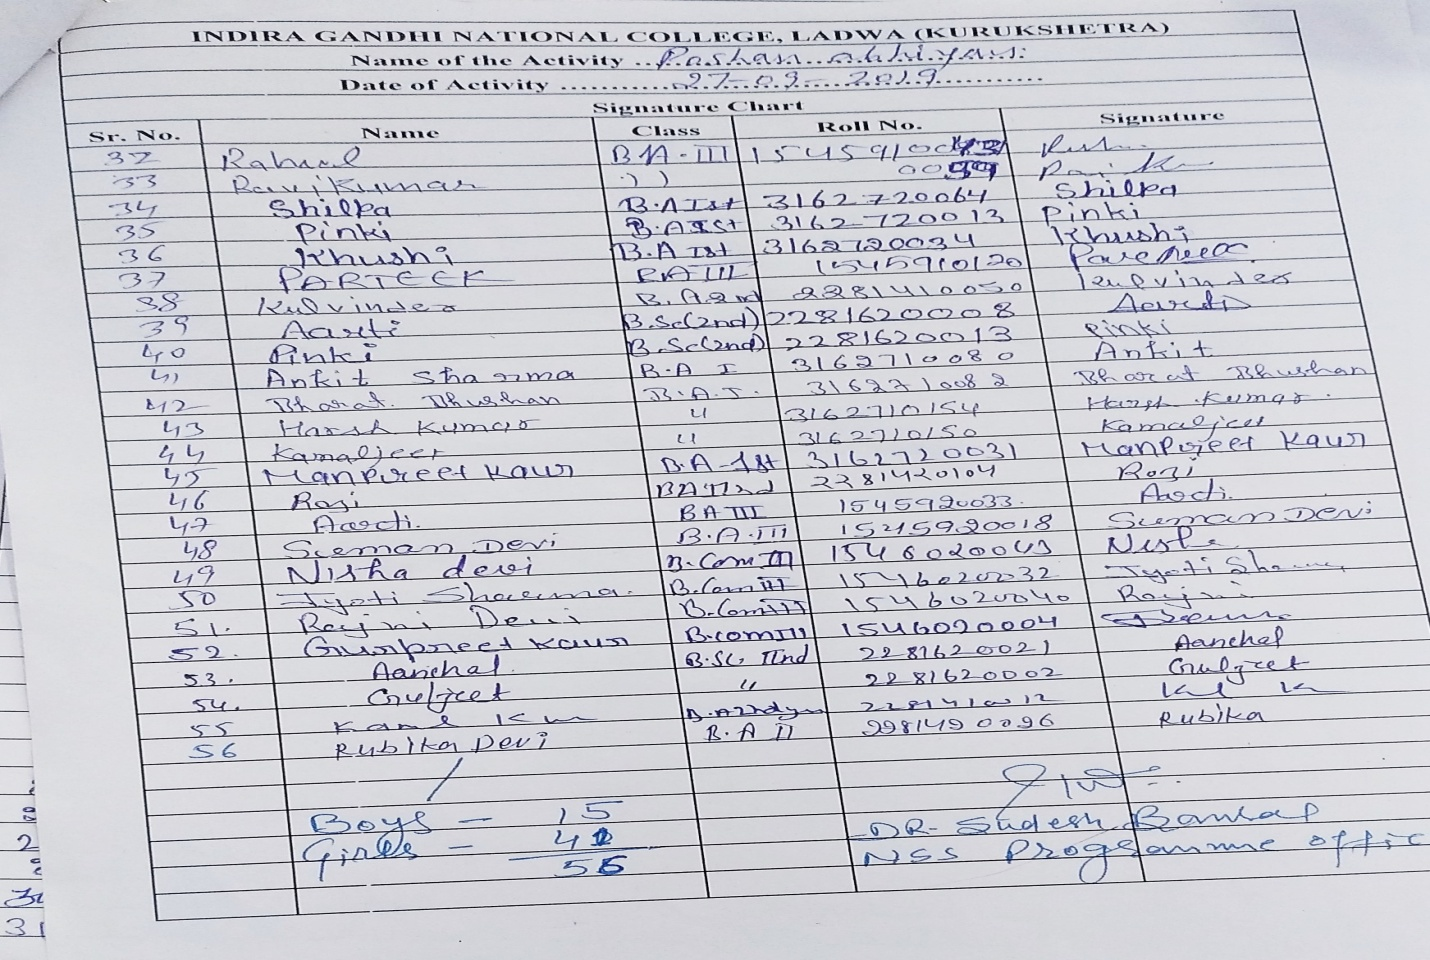 INDIRA GANDHI NATIONAL COLLEGE, LADWA (KURUKSHETRA)
Name of the Activity .. Poshan abhiyan
Date of Activity ........... 27-09-2019 ...........
Signature Chart
Sr. No. Name Class Roll No. Signature
32 Rahul BA-III 15459100
33 Ravi Kumar 0059
34 Shilpa B.A Ist 3162720064 Shilpa
35 Pinki B.A Ist 3162720013 Pinki
36 Khushi B.A Ist 3162720034 Khushi
37 PARTEEK BA III 1545910120 Parteek
38 Kulvinder B.A 2nd 2281410050 Kulvinder
39 Aarti B.Sc(2nd) 2281620008 Aarti
40 Pinki B.Sc(2nd) 2281620013 Pinki
41 Ankit Sharma B.A I 3162710080 Ankit
42 Bharat Bhushan B.A.I. 3162710082 Bharat Bhushan
43 Harsh Kumar " 3162710154 Harsh Kumar.
44 Kamaljeet " 3162710150 Kamaljeet
45 Manpreet Kaur B.A-Ist 3162720031 Manpreet Kaur
46 Rozi BA IInd 2281420104 Rozi
47 Aarti. BA III 1545920033. Aarti.
48 Suman Devi B.A.III 1545920018 Suman Devi
49 Nisha devi B.Com III 1546020043 Nisha
50 Jyoti Sharma. B.Com III 1546020032 Jyoti Sharma
51. Rajni Devi B.Com III 1546020040 Rajni
52. Gurpreet Kaur B.com III 1546020004
53. Aanchal. B.Sc. IInd 2281620021 Aanchal
54. Guljeet " 2281620002 Guljeet
55 B.A 2nd
56 Rubika Devi B.A II 2281420096 Rubika
Boys - 15
Girls - 41
56
DR. Sudesh Bansal
NSS Programme Offic